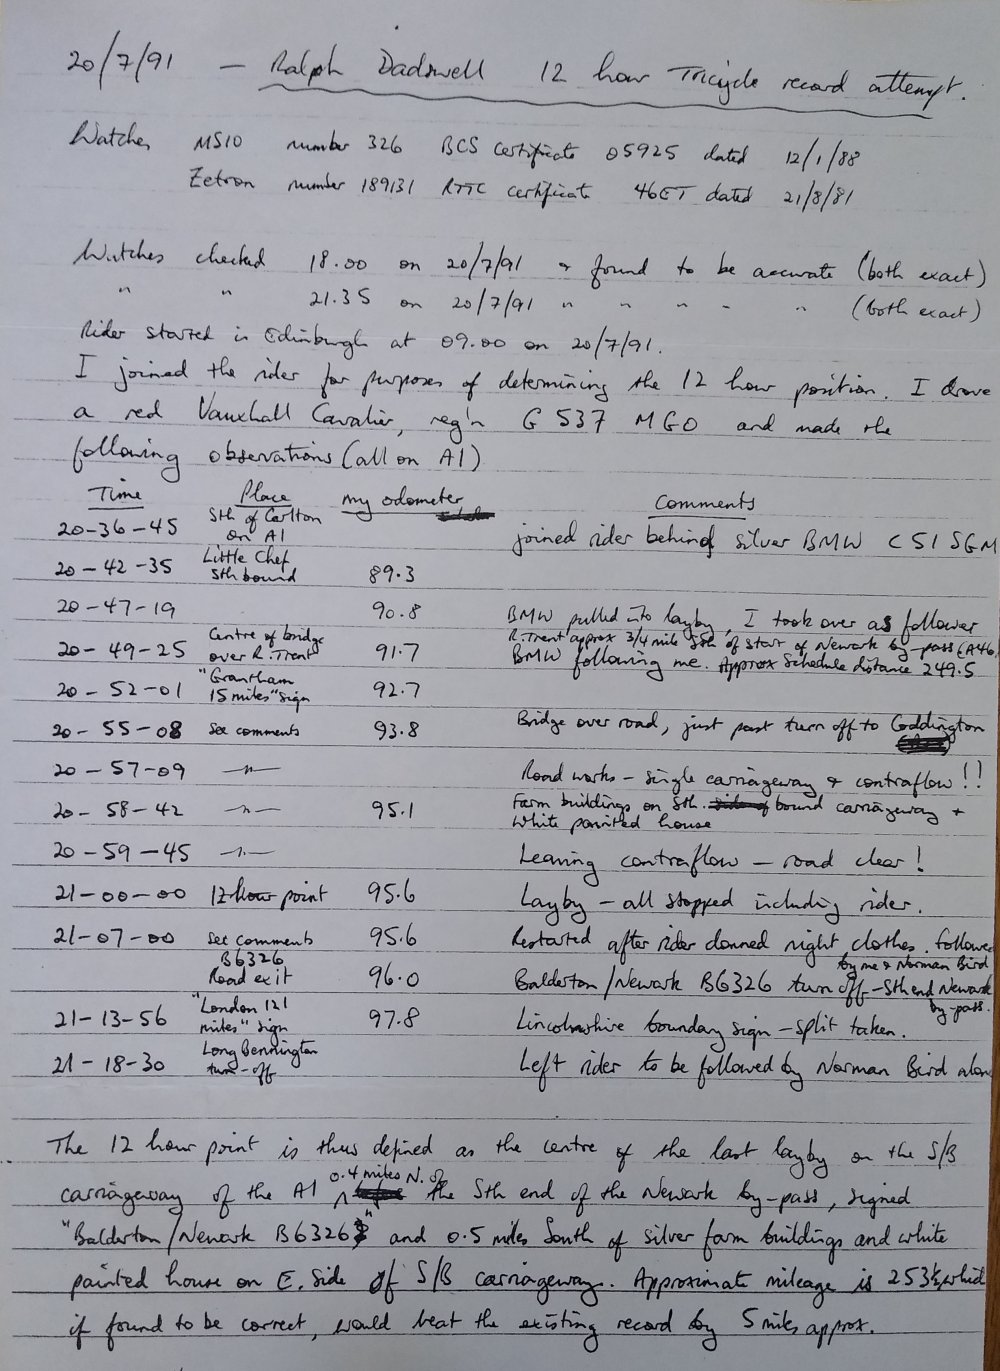 20/7/91 — Ralph Dadswell 12 hour Tricycle record attempt.
Watches MS10 number 326 BCS certificate 05925 dated 12/1/88
Zetron number 189131 RTTC certificate 46ET dated 21/8/81
Watches checked 18.00 on 20/7/91 & found to be accurate (both exact)
" " 21.35 on 20/7/91 " " " " " (both exact)
Rider started in Edinburgh at 09.00 on 20/7/91.
I joined the rider for purposes of determining the 12 hour position. I drove
a red Vauxhall Cavalier, reg'n G 537 MGO and made the
following observations (all on A1)
Time Place my odometer Comments
20-36-45 Sth of Carlton on A1 joined rider behind silver BMW C 51 SGM
20-42-35 Little Chef Sth bound 89.3
20-47-19 90.8 BMW pulled into layby, I took over as follower
20-49-25 Centre of bridge over R. Trent 91.7 R. Trent approx 3/4 mile Sth of start of Newark by-pass (A46)
BMW following me. Approx Schedule distance 249.5
20-52-01 "Grantham 15 miles" sign 92.7
20-55-08 See comments 93.8 Bridge over road, just past turn off to Coddington
20-57-09 —"— Road works – single carriageway & contraflow!!
20-58-42 —"— 95.1 Farm buildings on Sth. bound carriageway +
White painted house
20-59-45 —"— Leaving contraflow – road clear!
21-00-00 12 hour point 95.6 Layby – all stopped including rider.
21-07-00 See comments 95.6 Restarted after rider donned night clothes. Followed
by me & Norman Bird
B6326 Road exit 96.0 Balderton/Newark B6326 turn off – Sth end Newark
by-pass.
21-13-56 "London 121 miles" sign 97.8 Lincolnshire boundary sign – split taken.
21-18-30 Long Bennington turn-off Left rider to be followed by Norman Bird alone
The 12 hour point is thus defined as the centre of the last layby on the S/B
carriageway of the A1 0.4 miles N. of the Sth end of the Newark by-pass, signed
"Balderton/Newark B6326" and 0.5 miles South of silver farm buildings and white
painted house on E. Side of S/B carriageway. Approximate mileage is 253½, which
if found to be correct, would beat the existing record by 5 miles approx.